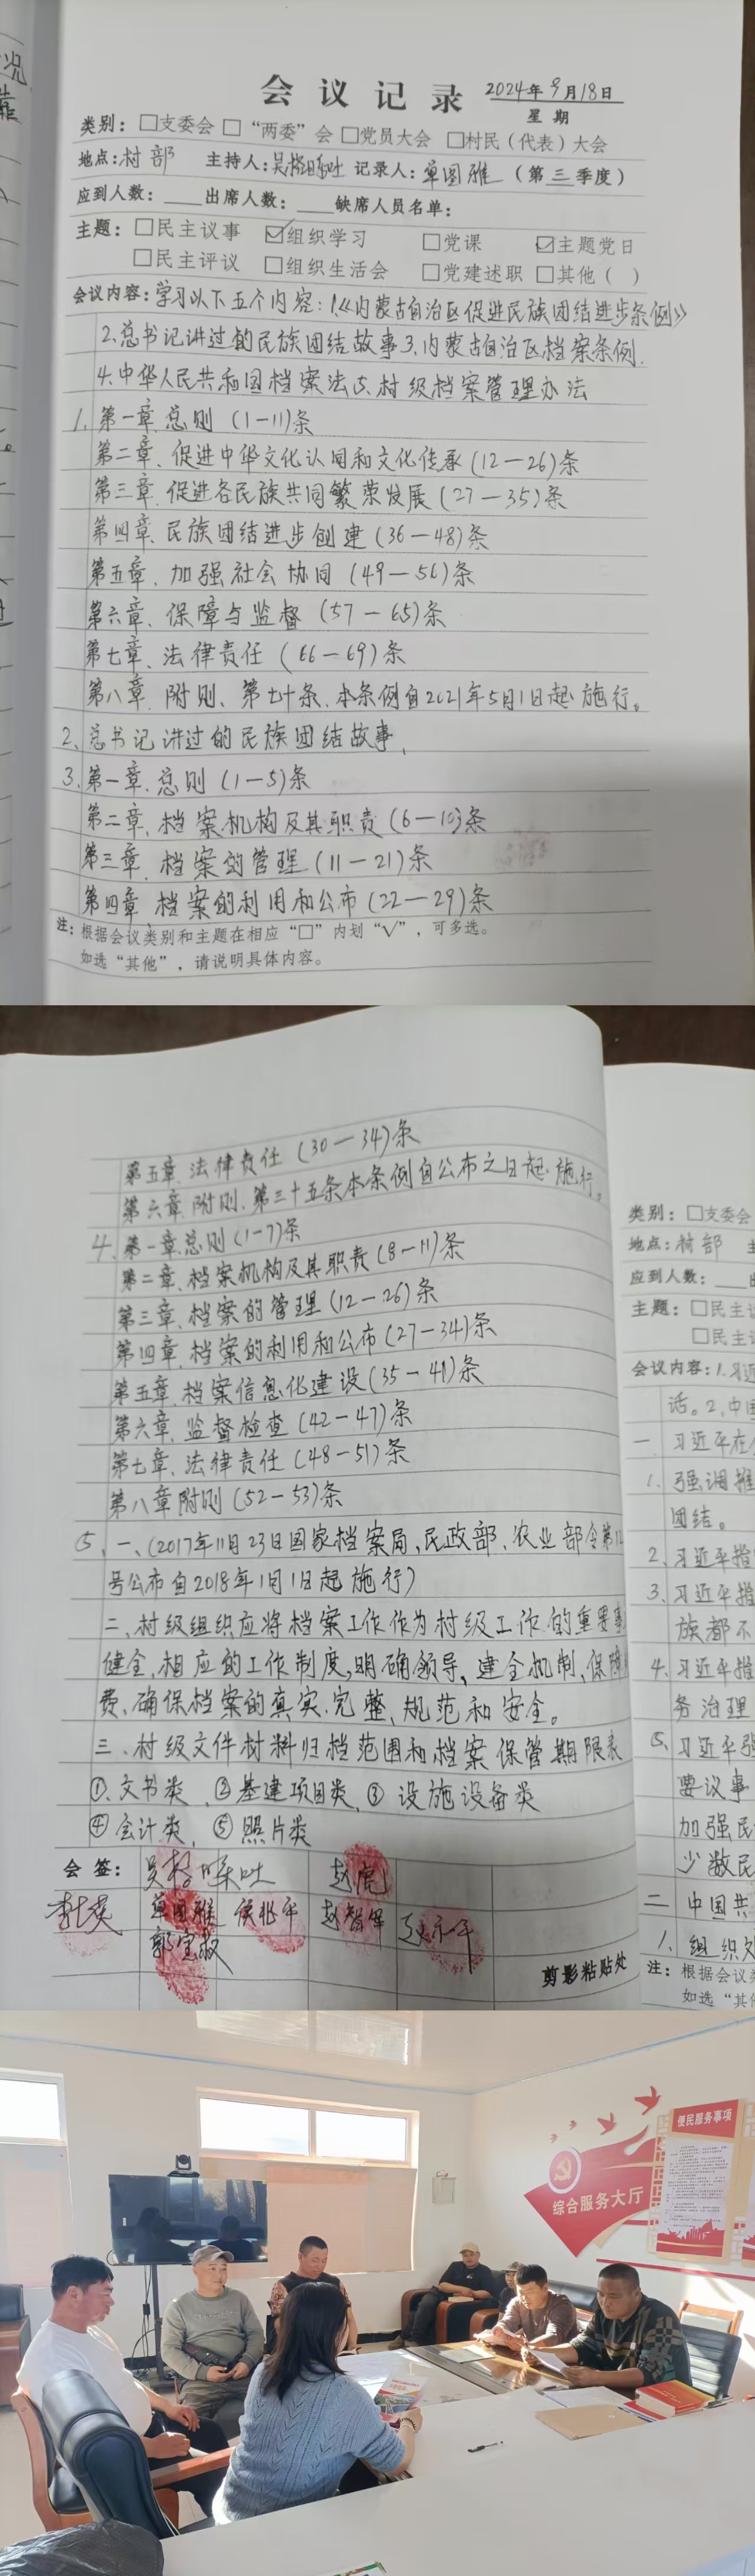 会议记录 2024年9月18日
星期
类别：□支委会 □“两委”会 □党员大会 □村民（代表）大会
地点：村部 主持人：吴格日乐吐 记录人：单图雅（第三季度）
应到人数：____出席人数：____缺席人员名单：
主题：□民主议事 ☑组织学习 □党课 ☑主题党日
□民主评议 □组织生活会 □党建述职 □其他（ ）
会议内容：学习以下五个内容：1.《内蒙古自治区促进民族团结进步条例》
2.总书记讲过的民族团结故事3.内蒙古自治区档案条例.
4.中华人民共和国档案法5.村级档案管理办法
1.第一章.总则（1—11)条
第二章.促进中华文化认同和文化传承(12—26)条
第三章.促进各民族共同繁荣发展(27—35)条
第四章.民族团结进步创建(36—48)条
第五章.加强社会协同(49—56)条
第六章.保障与监督(57—65)条
第七章.法律责任(66—69)条
第八章.附则、第七十条.本条例自2021年5月1日起施行。
2、总书记讲过的民族团结故事、
3.第一章.总则(1—5)条
第二章.档案机构及其职责(6—10)条
第三章.档案的管理(11—21)条
第四章.档案的利用和公布(22—29)条
注：根据会议类别和主题在相应“□”内划“√”，可多选。
如选“其他”，请说明具体内容。
第五章.法律责任(30—34)条
第六章.附则.第三十五条本条例自公布之日起施行。
4.第一章.总则(1-7)条
第二章.档案机构及其职责(8—11)条
第三章.档案的管理(12—26)条
第四章.档案的利用和公布(27—34)条
第五章.档案信息化建设(35—41)条
第六章.监督检查(42—47)条
第七章.法律责任(48—51)条
第八章附则(52—53)条
⑤、一、(2017年11月23日国家档案局、民政部、农业部令第12
号公布自2018年1月1日起施行)
二、村级组织应将档案工作作为村级工作的重要事
健全相应的工作制度,明确领导、建全机制、保障
费、确保档案的真实.完整、规范和安全。
三、村级文件材料归档范围和档案保管期限表
①.文书类、②基建项目类、③设施设备类
④会计类、⑤照片类
会签：吴格日乐吐 赵虎
单图雅 侯兆平 赵智军
剪影粘贴处
类别：□支委会
地点：村部 主
应到人数：____出
主题：□民主议
□民主评
会议内容：1.习近
话。2.中国
一 习近平在
1.强调推
团结。
2.习近平指
3.习近平指
族都不
4.习近平指
务治理
5.习近平强
要议事
加强民
少数民
二 中国共
1.组织
注：根据会议类
如选“其他
综合服务大厅
便民服务事项